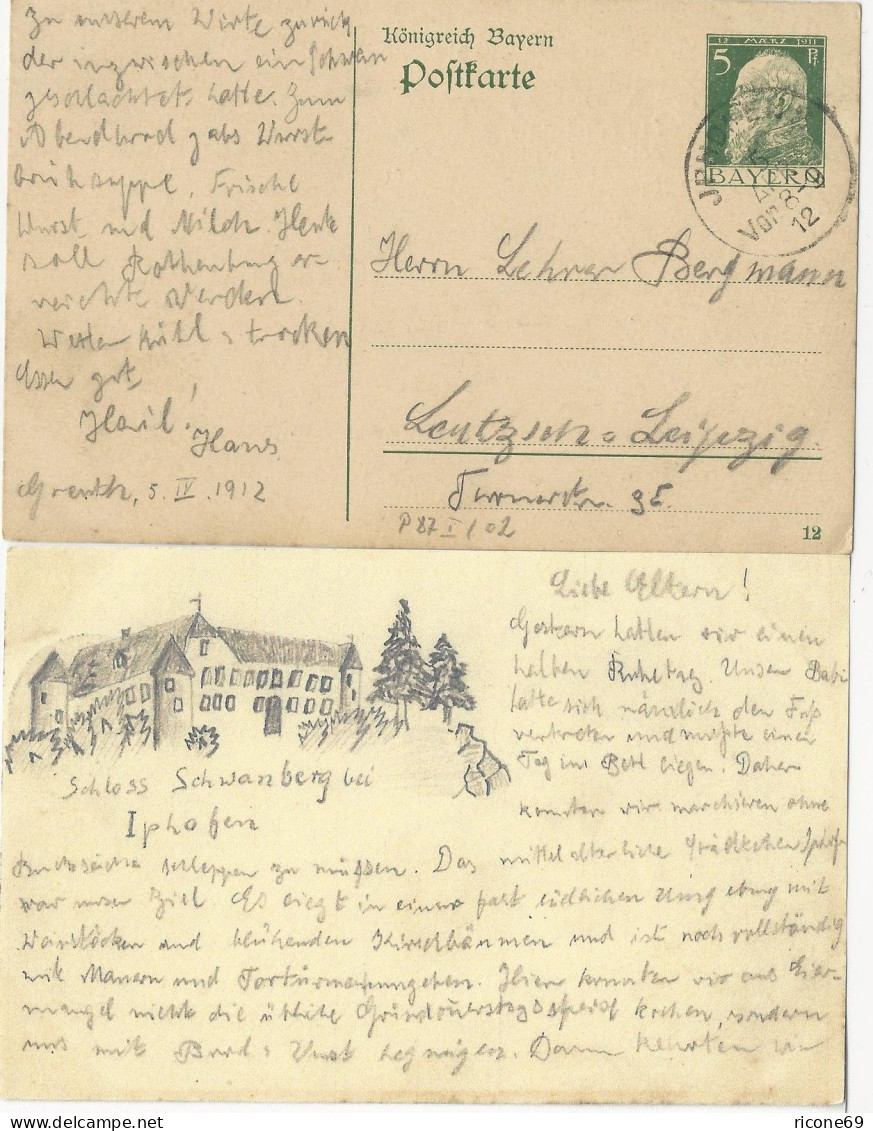 zu unserem Wirte zurück
der inzwischen ein Schwein
geschlachtet hatte. Zum
Abendbrod gabs Wurst
suppe, Frische
Wurst und Milch. Heute
soll Rothenburg er-
reicht werden.
Wetter kühl u trocken
Essen gut
Heil!
Hans
5. IV. 1912
Königreich Bayern
Postkarte
12 MÄRZ 1911
5 Pf.
BAYERN
Vor 8-9
12
Herrn Lehrer Bergmann
Leutzsch-Leipzig.
35.
P 87 I / 02
12
Liebe Eltern!
Gestern hatten wir einen
halben Ruhetag. Unser Babi
hatte sich nämlich den Fuß
vertreten und mußte einen
Tag im Bett liegen. Daher
konnten wir marschieren ohne
Schloss Schwanberg bei
Iphofen
Rucksäcke schleppen zu müßen. Das mittelalterliche Städtchen Iphofen
war unser Ziel Es liegt in einer fast südlichen Umgebung mit
Weinstöcken und blühenden Kirschbäumen und ist noch vollständig
mit Mauern und Tortürmen umgeben. Hier konnten wir aus Eier-
mangel nicht die übliche Gründonnerstagsspeise kochen, sondern
uns mit Brod u Wurst begnügen. Dann kehrten wir
ricone69